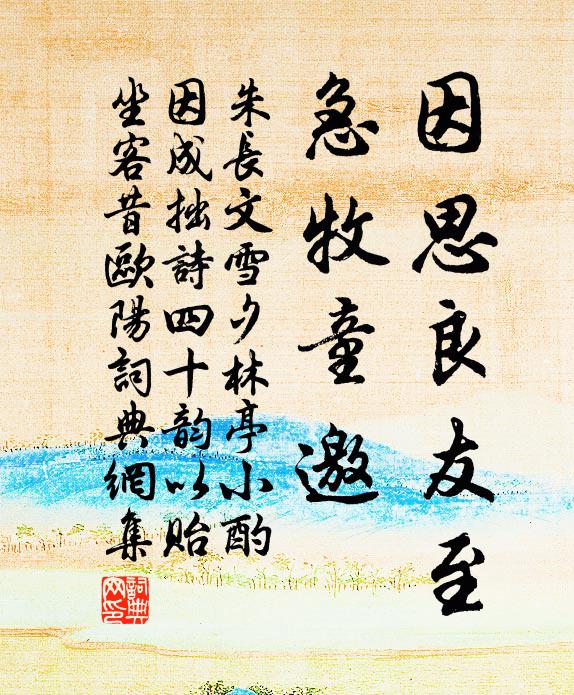 因思良友至
急牧童邀
朱長文雪夕林亭小酌
因成拙詩四十韵以貽
坐客昔歐陽詞典網集
詞典
网印